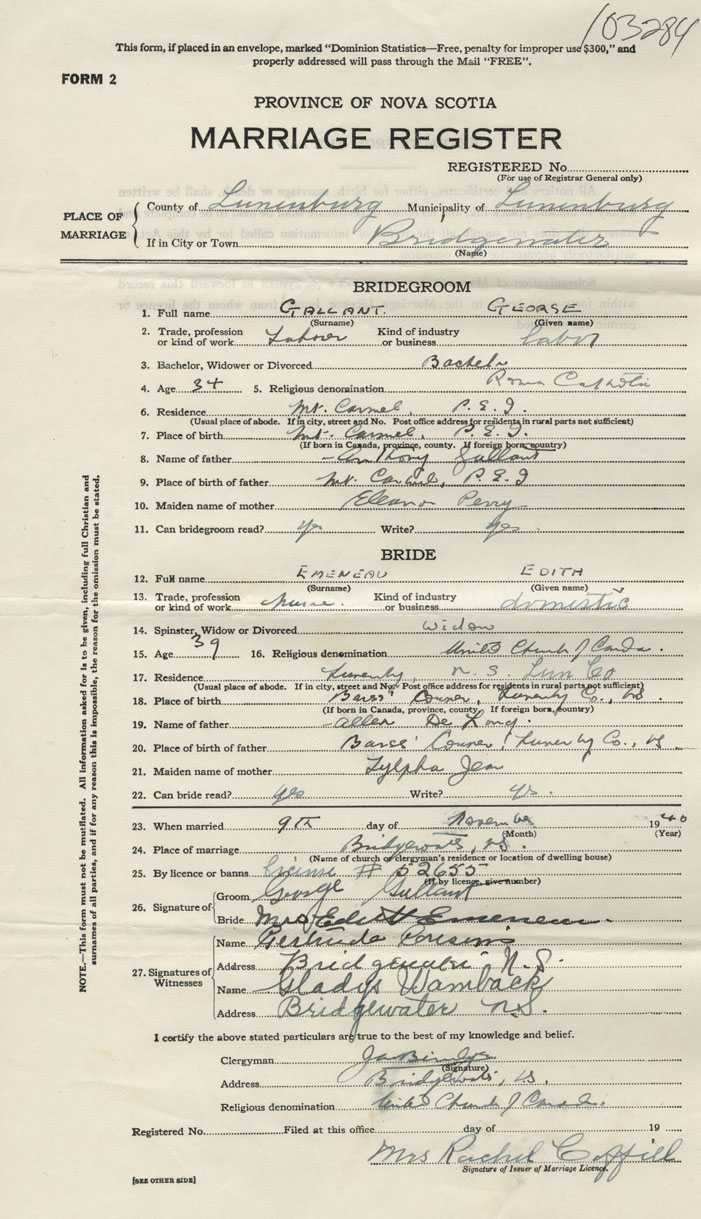 103284
This form, if placed in an envelope, marked "Dominion Statistics—Free, penalty for improper use $300," and
properly addressed will pass through the Mail "FREE".
FORM 2
PROVINCE OF NOVA SCOTIA
MARRIAGE REGISTER
REGISTERED No.
(For use of Registrar General only)
PLACE OF MARRIAGE
County of Lunenburg Municipality of Lunenburg
If in City or Town Bridgewater
(Name)
BRIDEGROOM
1. Full name GALLANT. GEORGE
(Surname) (Given name)
2. Trade, profession or kind of work Laborer Kind of industry or business labor
3. Bachelor, Widower or Divorced Bachelor
4. Age 34 5. Religious denomination Roman Catholic
6. Residence Mt. Carmel, P.E.I.
(Usual place of abode. If in city, street and No. Post office address for residents in rural parts not sufficient)
7. Place of birth Mt. Carmel, P.E.I.
(If born in Canada, province, county. If foreign born, country)
8. Name of father Anthony Gallant
9. Place of birth of father Mt. Carmel, P.E.I
10. Maiden name of mother Eleanor Perry
11. Can bridegroom read? yes Write? yes
BRIDE
12. Full name EMENEAU EDITH
(Surname) (Given name)
13. Trade, profession or kind of work Nurse. Kind of industry or business domestic
14. Spinster, Widow or Divorced Widow
15. Age 39 16. Religious denomination United Church of Canada.
17. Residence N.S. Lun Co
(Usual place of abode. If in city, street and No. Post office address for residents in rural parts not sufficient)
18. Place of birth Barss' Corner, Lunenburg Co., NS.
(If born in Canada, province, county. If foreign born, country)
19. Name of father Allen De Long.
20. Place of birth of father Barss' Corner, Lunenburg Co., NS
21. Maiden name of mother Zylpha Jean
22. Can bride read? yes Write? yes.
23. When married 9th day of November 1940
(Month) (Year)
24. Place of marriage Bridgewater, NS.
(Name of church or clergyman's residence or location of dwelling house)
25. By licence or banns license # 52655
(If by licence, give number)
26. Signature of
Groom George Gallant
Bride Mrs Edith Emeneau.
27. Signatures of Witnesses
Name Gertrude
Address Bridgewater N.S.
Name Gladys Wamback
Address Bridgewater N.S.
I certify the above stated particulars are true to the best of my knowledge and belief.
Clergyman
(Signature)
Address Bridgewater, NS.
Religious denomination United Church of Canada.
Registered No. Filed at this office day of 19
Mrs Rachel Coffill
Signature of Issuer of Marriage Licence.
[SEE OTHER SIDE]
NOTE.—This form must not be mutilated. All information asked for is to be given, including full Christian and
surnames of all parties, and if for any reason this is impossible, the reason for the omission must be stated.